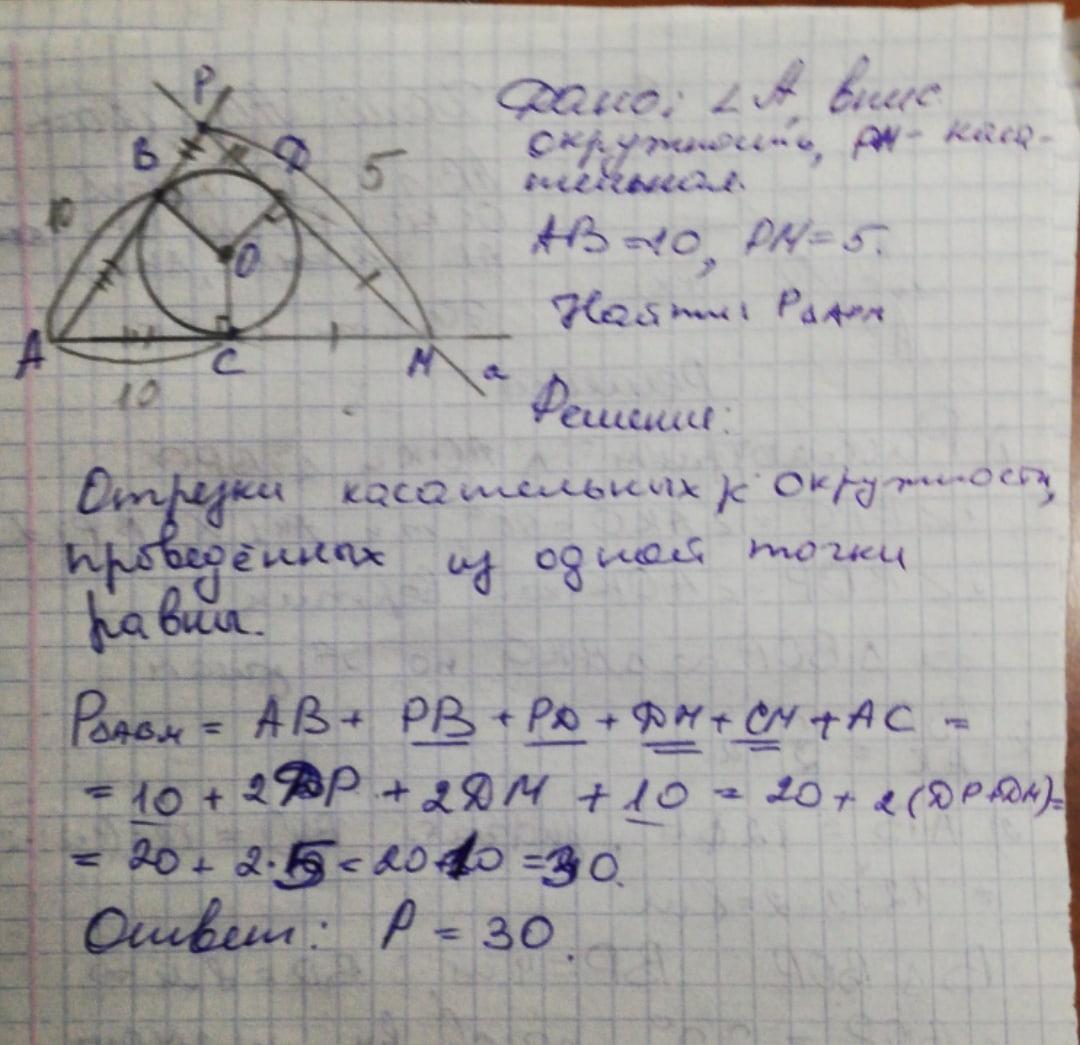 P
B
D
5
10
O
A
C
M
a
10
Дано: ∠A, впис.
окружность, PM - каса-
тельная.
AB = 10, PM = 5.
Найти: P△APM
Решение:
Отрезки касательных к окружности,
проведённых из одной точки
равны.
P△APM = AB + PB + PD + DM + CM + AC =
= 10 + 2DP + 2DM + 10 = 20 + 2(DP+DM)=
= 20 + 2·5 = 20+10 = 30.
Ответ: P = 30.